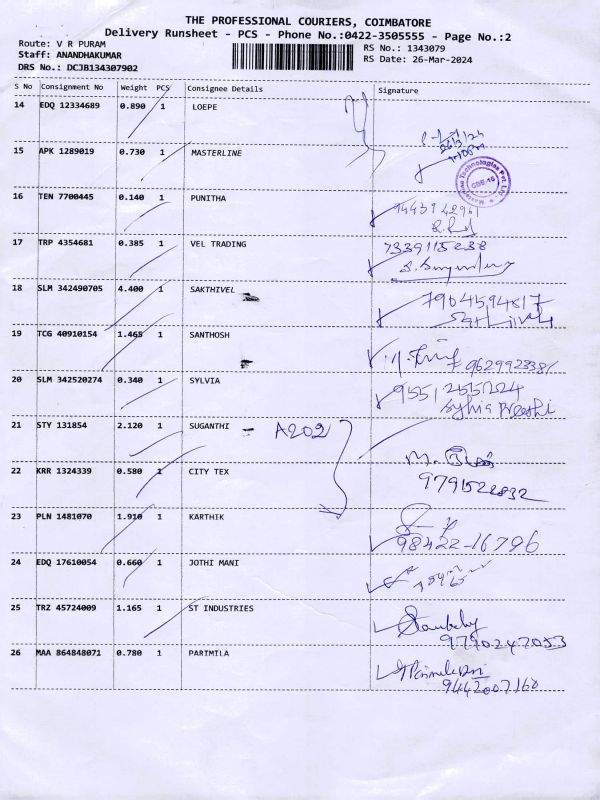 THE PROFESSIONAL COURIERS, COIMBATORE
Delivery Runsheet - PCS - Phone No.:0422-3505555 - Page No.:2
Route: V R PURAM
RS No.: 1343079
Staff: ANANDHAKUMAR
RS Date: 26-Mar-2024
DRS No.: DCJB134307902
S No Consignment No Weight PCS Consignee Details Signature
14 EDQ 12334689 0.890 1 LOEPE
15 APK 1289019 0.730 1 MASTERLINE
16 TEN 7700445 0.140 1 PUNITHA
17 TRP 4354681 0.385 1 VEL TRADING
18 SLM 342490705 4.400 1 SAKTHIVEL
19 TCG 40910154 1.465 1 SANTHOSH
20 SLM 342520274 0.340 1 SYLVIA
21 STY 131854 2.120 1 SUGANTHI A202
22 KRR 1324339 0.580 1 CITY TEX
9791522832
23 PLN 1481070 1.910 1 KARTHIK
98422-16796
24 EDQ 17610054 0.660 1 JOTHI MANI
25 TRZ 45724009 1.165 1 ST INDUSTRIES
9790247053
26 MAA 864848071 0.780 1 PARIMILA
9442007160